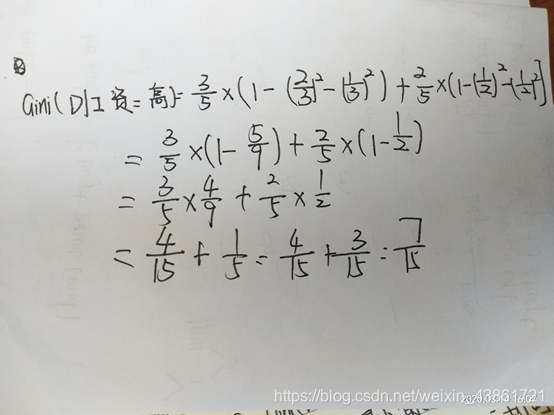 Gini(D|工资=高)=3/5×(1-(2/3)²-(1/3)²)+2/5×(1-(1/2)²-(1/2)²)
=3/5×(1-5/9)+2/5×(1-1/2)
=3/5×4/9+2/5×1/2
=4/15+1/5=4/15+3/15=7/15
https://blog.csdn.net/weixin_43861721